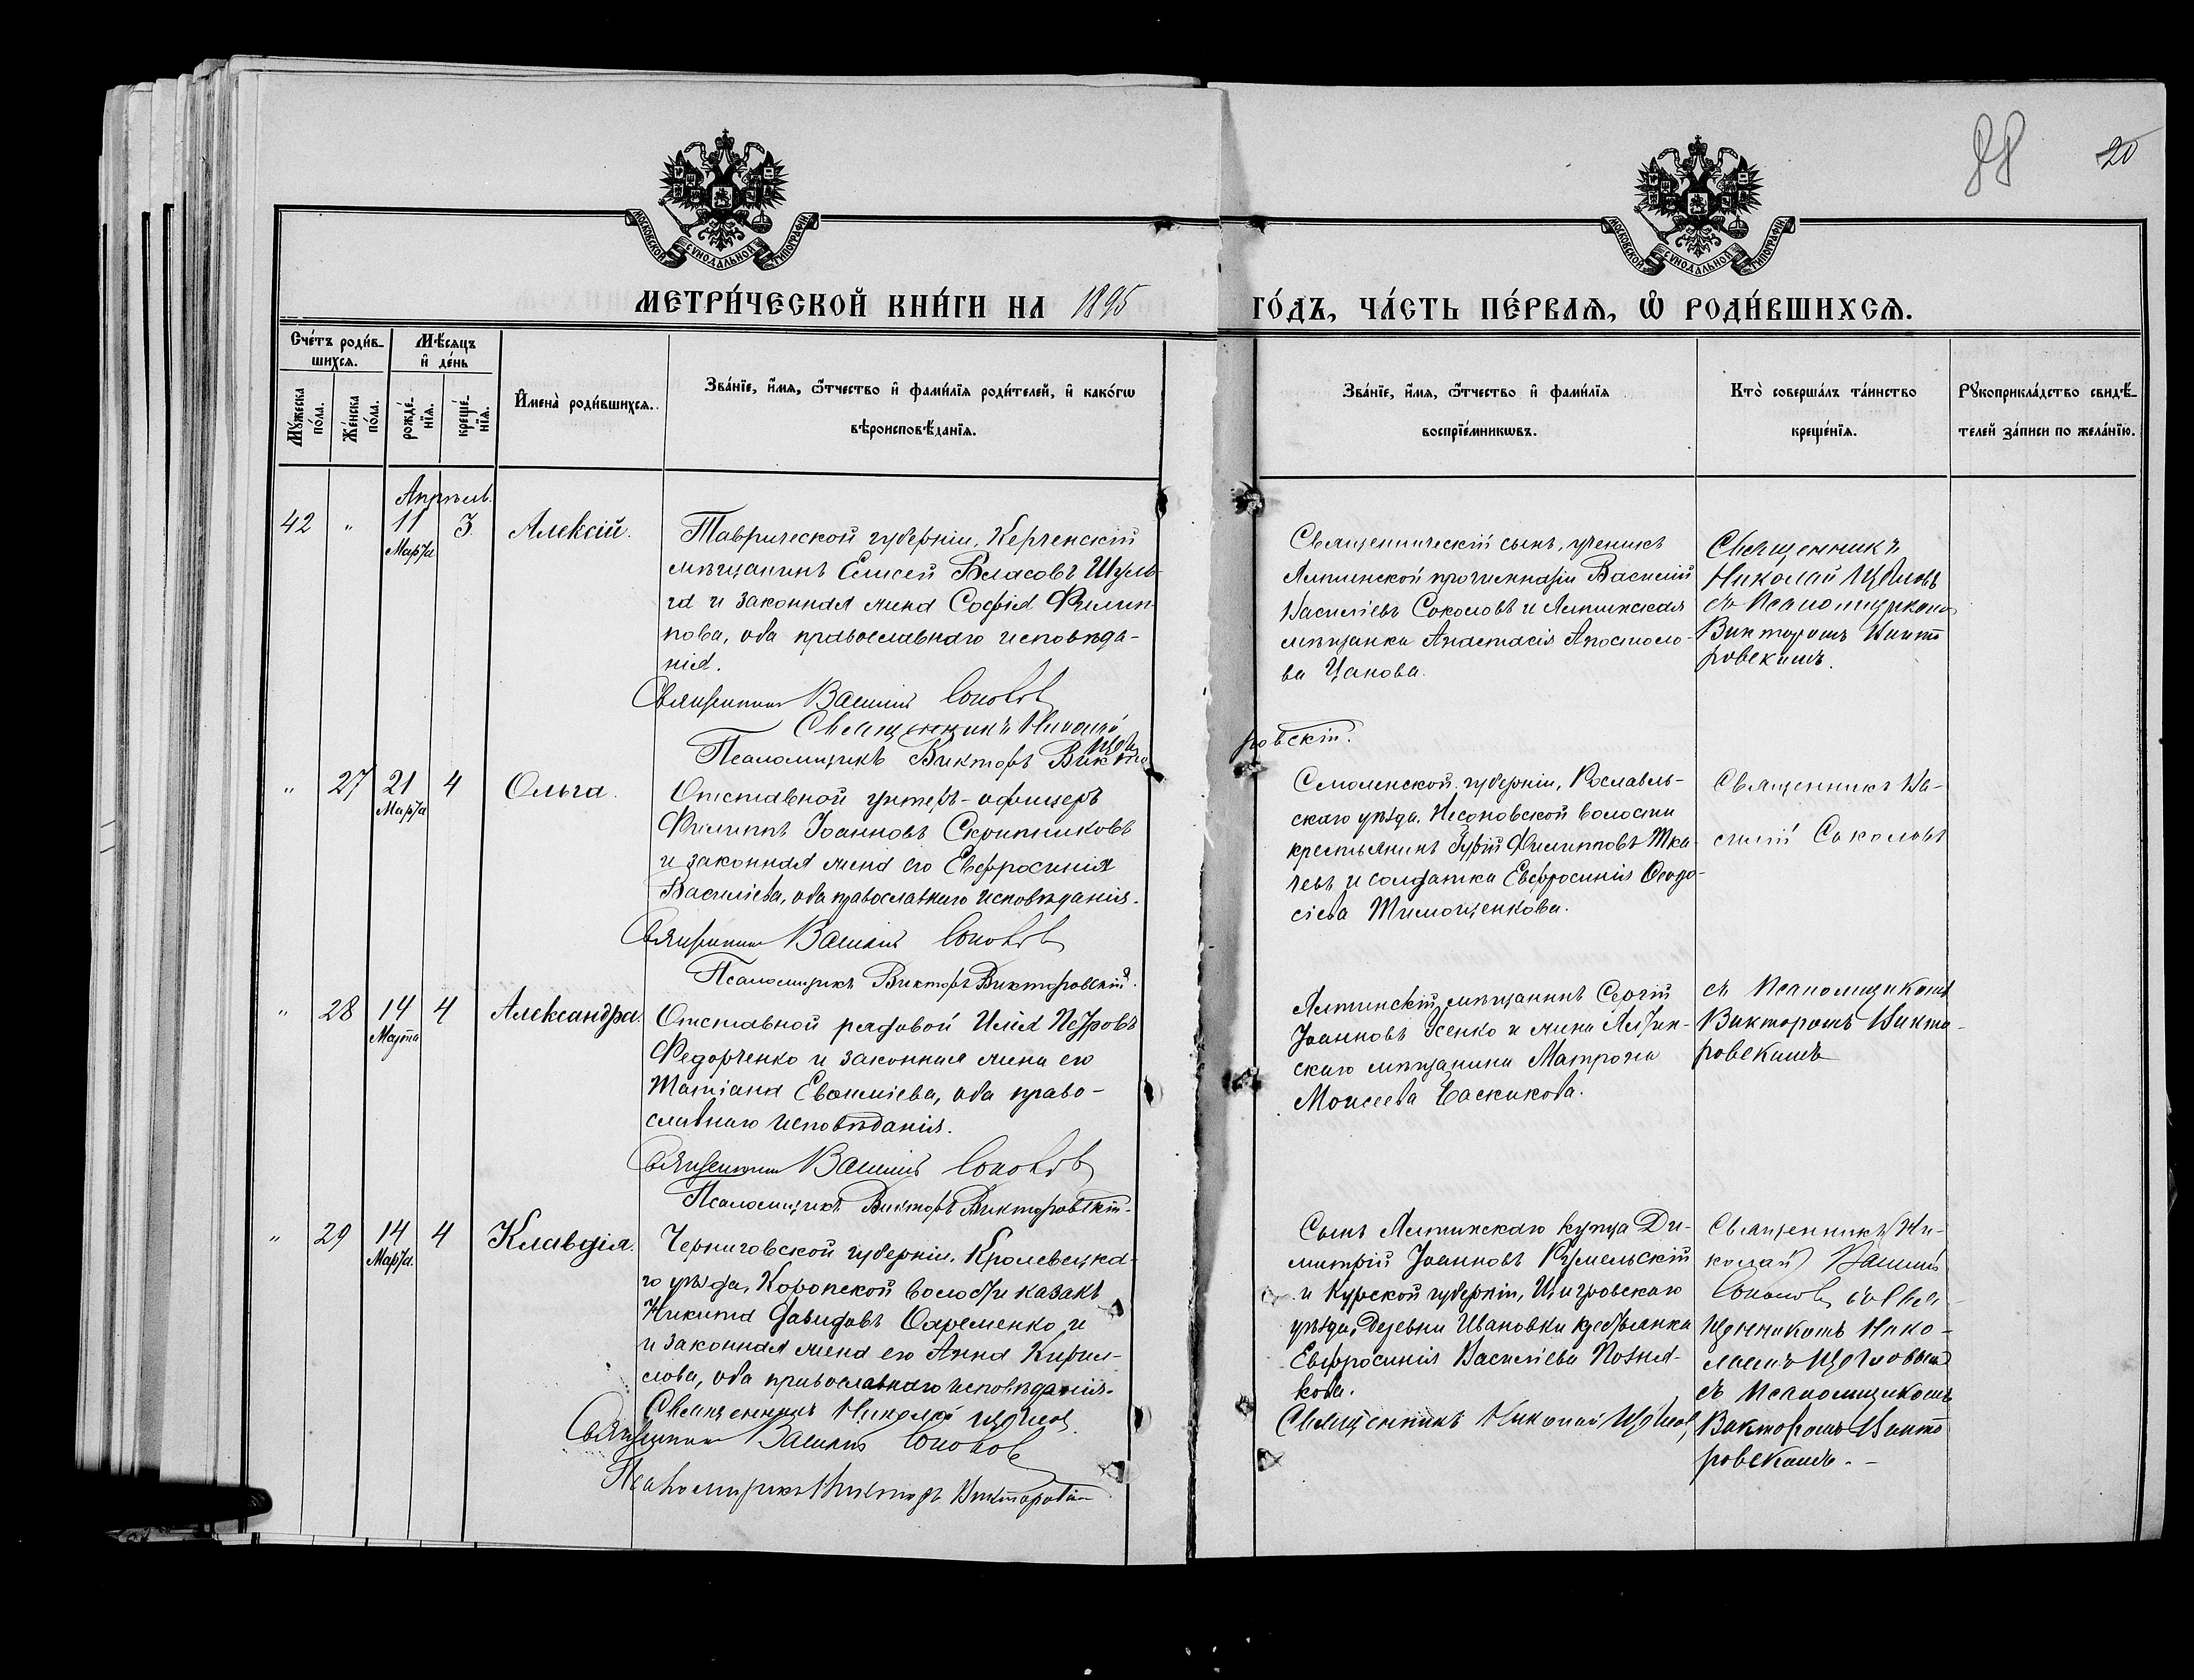 88
20
МОСКОВСКОЙ СУНОДАЛЬНОЙ ТИПОГРАФІИ
МОСКОВСКОЙ СУНОДАЛЬНОЙ ТИПОГРАФІИ
МЕТРИ́ЧЕСКОЙ КНИ́ГИ НА 1895 ГО́ДЪ, ЧА́СТЬ ПЕ́РВАѦ, Ѡ҆ РОДИ́ВШИХСѦ.
Сче́тъ роди́в-
шихсѧ.
Мꙋ́жеска
по́ла.
Же́нска
по́ла.
Мѣ́сѧцъ
и҆ де́нь
рожде́-
нїѧ.
креще́-
нїѧ.
И҆мена̀ роди́вшихсѧ.
Зва́нїе, и҆́мѧ, ѻ҆́тчество и҆ фами́лїѧ роди́телей, и҆ како́гѡ
вѣроисповѣ́данїѧ.
Зва́нїе, и҆́мѧ, ѻ҆́тчество и҆ фами́лїѧ
воспрїе́мникѡвъ.
Кто̀ соверша́лъ та́инство
креще́нїѧ.
Рꙋкоприкла́дство свидѣ́-
телей за́писи по жела́нїю.
Апрѣль.
42 " 11 3 Алексій.
Марта
Таврической губерніи, Керченскій
мѣщанинъ Елисей Власовъ Шуль-
га и законная жена Софія Филип-
пова, оба православнаго исповѣда-
нія.
Священникъ Василій Соколовъ
Священникъ Николай
Псаломщикъ Викторъ Викто
ровскій.
Священническій сынъ, ученикъ
Ялтинской прогимназіи Василій
Василіевъ Соколовъ и Ялтинская
мѣщанка Анастасія Апостоло-
ва Цанова.
Священникъ
Николай
съ Псаломщикомъ
Викторомъ Викто
ровскимъ.
" 27 21 4 Ольга.
Марта
Отставной унтеръ-офицеръ
Филиппъ Іоанновъ Скрипниковъ
и законная жена его Евфросинія
Василіева, оба православнаго исповѣданія.
Священникъ Василій Соколовъ
Псаломщикъ Викторъ Викторовскій.
Смоленской губерніи, Рославль-
скаго уѣзда, волости
крестьянинъ Гурій Филипповъ Тка-
чевъ и солдатка Евфросинія Ѳеодо-
сіева Тимощенкова.
Священникъ Ва-
силій Соколовъ
" 28 14 4 Александра.
Марта
Отставной рядовой Илія Петровъ
Федорченко и законная жена его
Татіана Евѳиміева, оба право-
славнаго исповѣданія.
Священникъ Василій Соколовъ
Псаломщикъ Викторъ Викторовскій.
Ялтинскій мѣщанинъ Сергій
Іоанновъ Усенко и жена Ялтин-
скаго мѣщанина Матрона
Моисеева Баскакова.
съ Псаломщикомъ
Викторомъ Викто-
ровскимъ
" 29 14 4 Клавдія.
Марта.
Черниговской губерніи, Кролевецка-
го уѣзда, Коропской волости казакъ
Никита Давидовъ и
и законная жена его Анна Кирил-
лова, оба православнаго исповѣданія.
Священникъ Николай
Священникъ Василій Соколовъ
Псаломщикъ Викторъ Викторовскій
Сынъ Ялтинскаго купца Ди-
митрій Іоанновъ
и Курской губерніи, Щигровскаго
уѣзда, деревни Ивановки крестьянка
Евфросинія Василіева Позня-
кова.
Священникъ Николай
Священникъ Ни-
колай Василій
Соколовъ со Свя-
щенникомъ Нико-
лаемъ
съ Псаломщикомъ
Викторомъ Викто
ровскимъ. -